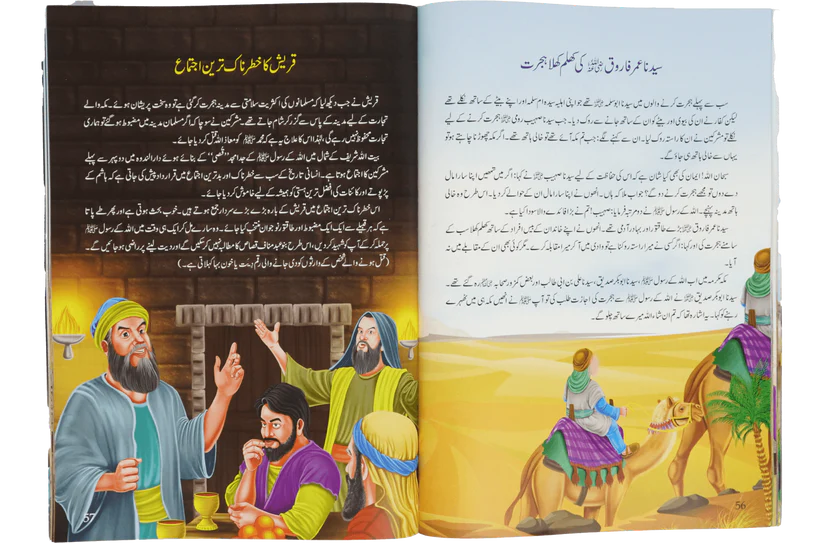 سیدنا عمر فاروق رضی اللہ عنہ کی کھلم کھلا ہجرت
سب سے پہلے ہجرت کرنے والوں میں سیدنا ابوسلمہ رضی اللہ عنہ تھے جو اپنی اہلیہ سیدہ ام سلمہ اور اپنے بیٹے کے ساتھ نکلے تھے
لیکن کفار نے ان کی بیوی اور بیٹے کو ان کے ساتھ جانے سے روک دیا۔ جب سیدنا صہیب رومی رضی اللہ عنہ ہجرت کرنے کے لیے
نکلے تو مشرکین نے ان کا راستہ روک لیا۔ ان سے کہنے لگے: جب تم مکہ آئے تھے تو خالی ہاتھ تھے۔ اگر مکہ چھوڑنا چاہتے ہو تو
یہاں سے خالی ہاتھ ہی جاؤ گے۔
سبحان اللہ! ایمان کی بھی کیا شان ہے کہ اس کی حفاظت کے لیے سیدنا صہیب رضی اللہ عنہ نے کہا: اگر میں تمھیں اپنا سارا مال
دے دوں تو مجھے ہجرت کرنے دو گے؟ جواب ملا کہ ہاں۔ انھوں نے اپنا سارا مال ان کے حوالے کر دیا۔ اس طرح وہ خالی
ہاتھ مدینہ پہنچے۔ اللہ کے رسول ﷺ نے دو مرتبہ فرمایا: صہیب! تم نے بڑا فائدے والا سودا کیا ہے۔
سیدنا عمر فاروق رضی اللہ عنہ بڑے طاقتور اور بہادر آدمی تھے۔ انھوں نے اپنے خاندان کے بیس افراد کے ساتھ کھلم کھلا سب کے
سامنے ہجرت کی اور کہا: اگر کسی نے میرا راستہ روکنا ہے تو وادی میں آ کر میرا مقابلہ کرے۔ مگر کوئی بھی ان کے مقابلے میں نہ
آیا۔
مکہ مکرمہ میں اب اللہ کے رسول ﷺ، سیدنا ابوبکر صدیق، سیدنا علی بن ابی طالب اور بعض کمزور صحابہ رہ گئے تھے۔
سیدنا ابوبکر صدیق رضی اللہ عنہ نے اللہ کے رسول ﷺ سے ہجرت کی اجازت طلب کی تو آپ ﷺ نے انھیں مکہ ہی میں ٹھہرے
رہنے کو کہا۔ یہ اشارہ تھا کہ تم ان شاء اللہ میرے ساتھ چلو گے۔
56
قریش کا خطرناک ترین اجتماع
قریش نے جب دیکھ لیا کہ مسلمانوں کی اکثریت سلامتی سے مدینہ ہجرت کر گئی ہے تو وہ سخت پریشان ہوئے۔ مکہ والے
تجارت کے لیے مدینہ کے پاس سے گزر کر شام جاتے تھے۔ مشرکین نے سوچا کہ اگر مسلمان مدینہ میں مضبوط ہو گئے تو ہماری
تجارت محفوظ نہیں رہے گی، لہٰذا اس کا علاج یہ ہے کہ محمد ﷺ کو معاذ اللہ قتل کر دیا جائے۔
بیت اللہ شریف کے شمال میں اللہ کے رسول ﷺ کے جد امجد "قصی" کے بنائے ہوئے دارالندوہ میں دوپہر سے پہلے
مشرکین کا اجتماع ہوتا ہے۔ انسانی تاریخ کے سب سے خطرناک اور بدترین اجتماع میں قرارداد پیش کی جاتی ہے کہ ہاشم کے
پڑپوتے اور کائنات کی افضل ترین ہستی کو ہمیشہ کے لیے خاموش کر دیا جائے۔
اس خطرناک ترین اجتماع میں قریش کے بارہ بڑے بڑے سردار جمع ہوتے ہیں۔ خوب بحث ہوتی ہے اور پھر طے پاتا
ہے کہ ہر قبیلے سے ایک ایک مضبوط اور طاقتور نوجوان منتخب کیا جائے۔ وہ سارے مل کر ایک ہی وقت میں اللہ کے رسول ﷺ
پر حملہ کر کے آپ کو شہید کر دیں، اس طرح بنو عبد مناف قصاص کا مطالبہ نہیں کر سکیں گے اور دیت لینے پر راضی ہو جائیں گے۔
(قتل ہونے والے شخص کے وارثوں کو دی جانے والی رقم دیت یا خون بہا کہلاتی ہے۔)
57